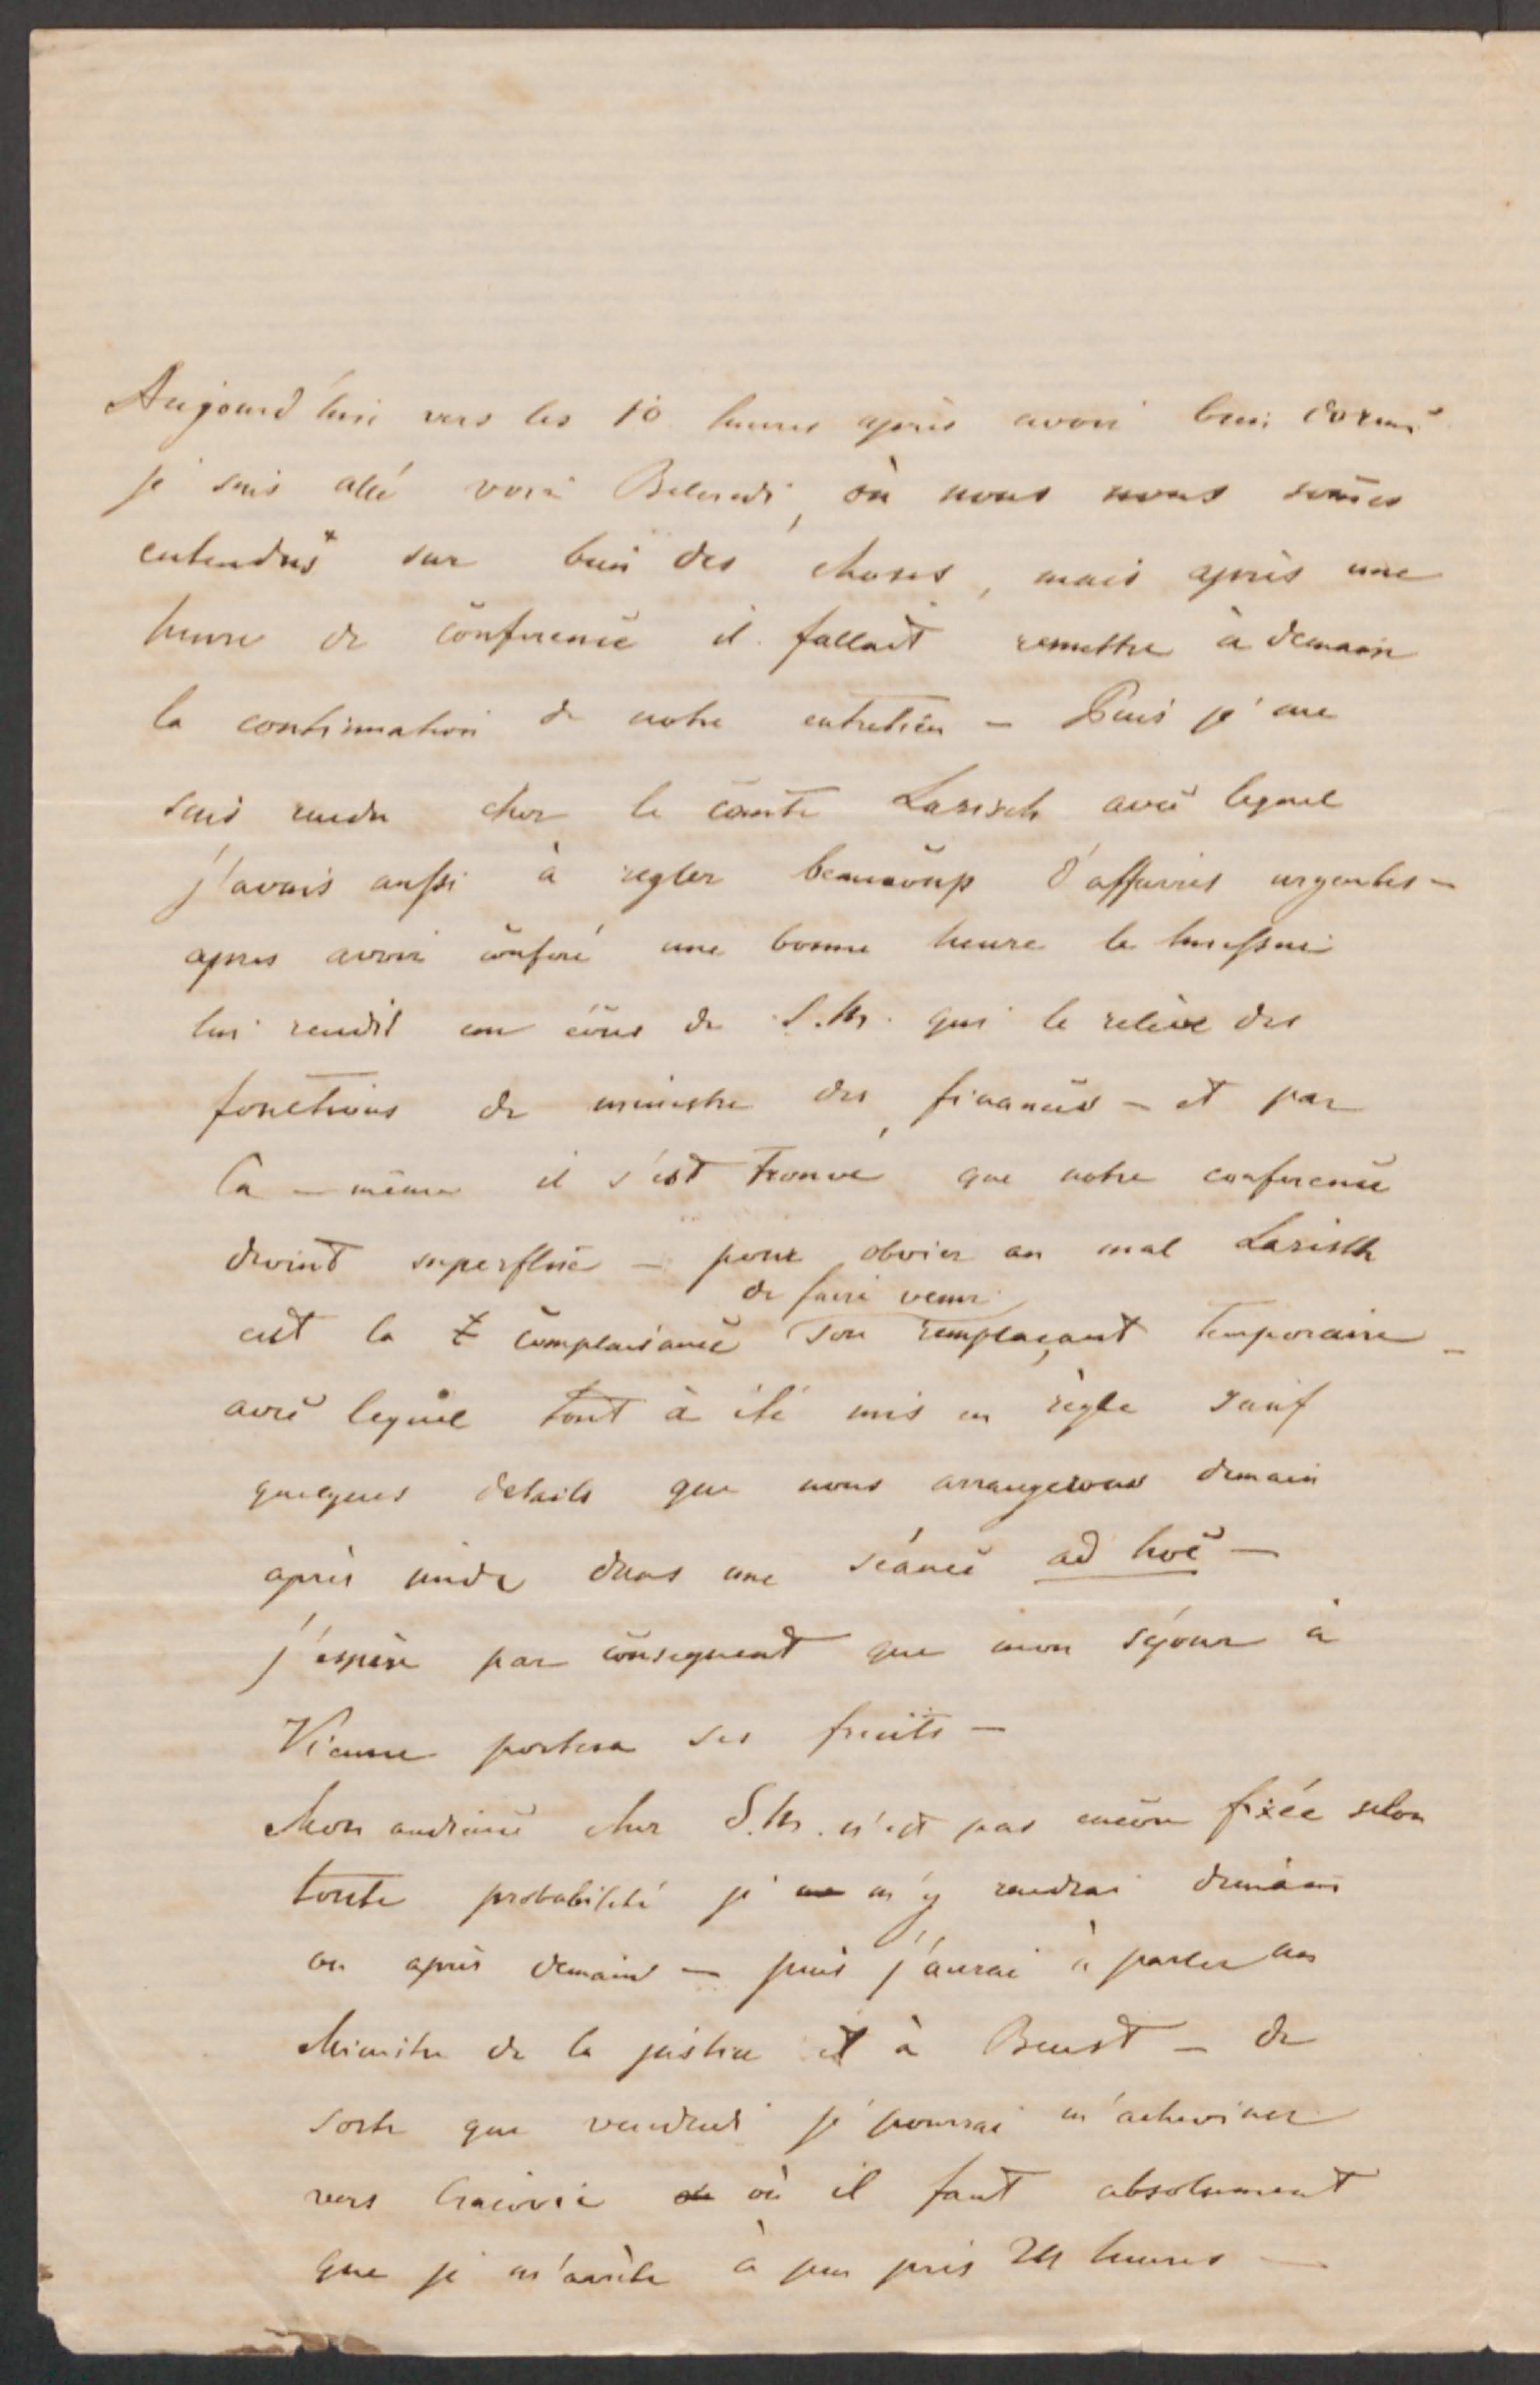 Aujourd'hui vers les 10 heures après avoir bien dormi
je suis allé voir Belcredi, où nous nous som̄es
entendus sur bien des choses, mais après une
heure de conference il fallait remettre à demain
la continuation de notre entretien – Puis je me
suis rendu chez le comte Larisch avec lequel
j'avais aussi à regler beaucoup d'affaires urgentes –
apres avoir conferé une bonne heure le huissier
lui rendit un de S.M. qui le relève des
fonctions de ministre des finances – et par
là – même il s'est trouvé que notre conference
devint superflue – pour obvier au mal Larisch
eut la complaisance de faire venir son remplaçant temporaire –
avec lequel tout à été mis en règle sauf
quelques details que nous arrangerons demain
après midi dans une séance ad hoc –
j'espère par consequent que mon séjour à
Vienne portera ses fruits –
Mon audience chez S.M. n'est pas encore fixée selon
toute probabilité je m'y rendrai demain
ou après demain – puis j'aurai à parler au
Ministre de la justice et à Beust – de
sorte que vendredi je pourrai m'acheminer
vers Cracovie où il faut absolument
que je m'arrête à peu près 24 heures –